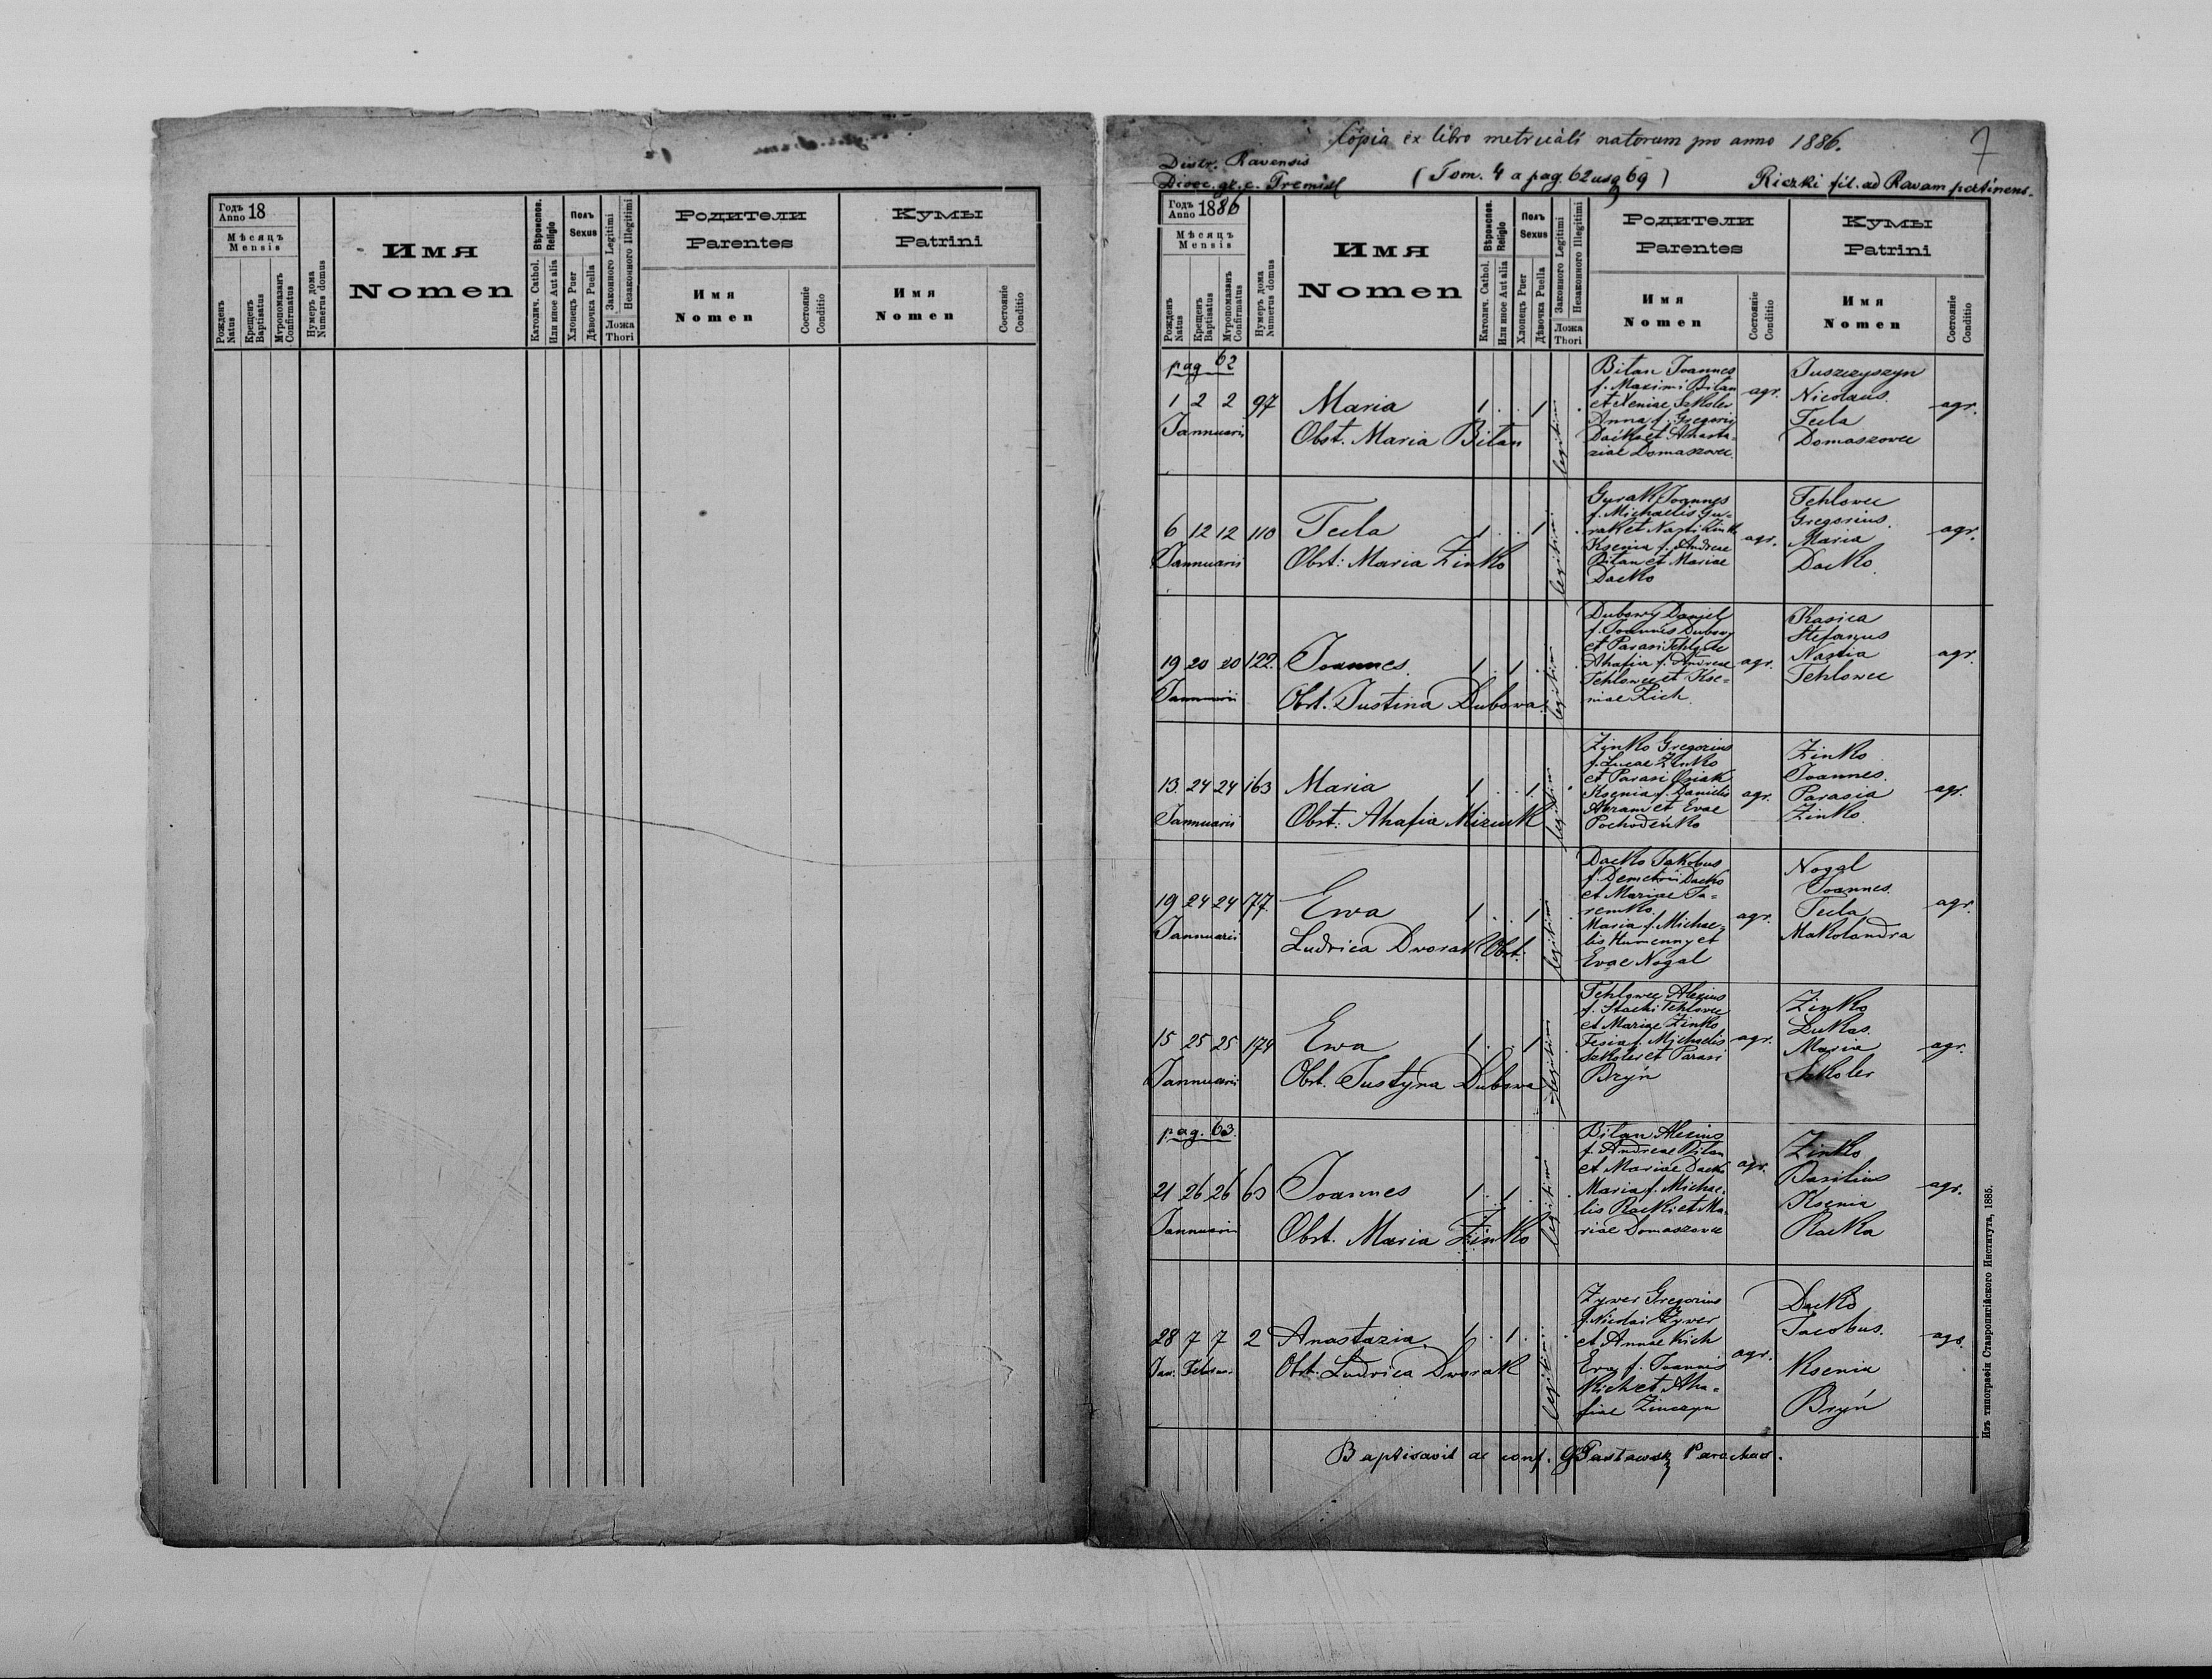 Годъ
Anno 18
Мѣсяцъ
Mensis
Рожденъ
Natus
Крещенъ
Baptisatus
Мѵропомазанъ
Confirmatus
Нумеръ дома
Numerus domus
Имя
Nomen
Вѣроиспов.
Religio
Католич. Cathol.
Или иное Aut alia
Полъ
Sexus
Хлопецъ Puer
Дѣвочка Puella
Законного Legitimi
Незаконного Illegitimi
Ложа
Thori
Родители
Parentes
Имя
Nomen
Состояніе
Conditio
Кумы
Patrini
Имя
Nomen
Состояніе
Conditio
Copia ex libro metricali natorum pro anno 1886.
7
Distr. Ravensis
Dioec. gr. c. Premisl
(Tom. 4 a pag. 62 usq 69)
Riczki fil. ad Ravam pertinens.
Годъ
Anno 1886
Мѣсяцъ
Mensis
Рожденъ
Natus
Крещенъ
Baptisatus
Мѵропомазанъ
Confirmatus
Нумеръ дома
Numerus domus
Имя
Nomen
Вѣроиспов.
Religio
Католич. Cathol.
Или иное Aut alia
Полъ
Sexus
Хлопецъ Puer
Дѣвочка Puella
Законного Legitimi
Незаконного Illegitimi
Ложа
Thori
Родители
Parentes
Имя
Nomen
Состояніе
Conditio
Кумы
Patrini
Имя
Nomen
Состояніе
Conditio
pag 62
1 2 2 97 Maria 1 . . 1 .
Jannuarii
Obst. Maria Bilan
legitim
Bilan Joannes
f. Maximi Bilan
et Xeniae Szkoler
Anna f. Gregorii
Dacko et Anasta-
ziae Domaszowec.
agr.
Juszczyszyn
Nicolaus.
Tecla
Domaszowec
agr.
6 12 12 110 Tecla 1 . . 1 .
Jannuarii
Obst: Maria Zinko
legitim
Gurak Joannes
f. Michaelis Gu-
rak et Nasti Zinko
Ksenia f. Andreae
Bilan et Mariae
Dacko
agr.
Tehlowec
Gregorius.
Maria
Dacko.
agr.
19 20 20 122. Joannes. 1 . 1 . .
Jannuarii
Obst. Justina Dubowa
legitim
Dubowy Daniel
f. Joannis Dubowy
et Parasi
Ahafia f. Andreae
Tehlowec et Kse-
niae Kich.
agr.
Kasica
Stefanus
Nastia
Tehlowec
agr.
13. 24 24 163 Maria 1 . . 1 .
Jannuarii
Obst: Ahafia Mizuk
legitim
Zinko Gregorius
f. Lucae Zinko
et Parasi
Ksenia f. Danielis
Abram et Evae
Pochodeńko
agr.
Zinko
Joannes.
Parasia
Zinko.
agr.
19 24 24 77. Ewa 1 . . 1 .
Jannuarii
Ludvica Dworak Obst.
legitim
Dacko Jakobus
f. Demetrii Dacko
et Mariae Ja-
remko.
Maria f. Michae-
lis Humenny et
Evae Nogal
agr.
Nogal
Joannes.
Tecla
Makolandra
agr.
15 25 25 174 Ewa 1 . . 1 .
Jannuarii
Obst. Justyna Dubowa
legitim
Tehlowec Alexius
f. Stachi Tehlowec
et Mariae Zinko
Fesia f. Michaelis
Szkoler et Parasi
Bzyń
agr.
Zinko
Lukas.
Maria
Szkoler
agr.
pag. 63.
21 26 26 63 Joannes 1 . 1 . .
Jannuarii
Obst. Maria Zinko
legitim
Bilan Alexius
f. Andreae Bilan
et Mariae Dacko
Maria f. Michae-
lis Racki et Ma-
riae Domaszowec
agr.
Zinko
Basilius
Ksenia
Racka
agr.
28 7 7 2 Anastazia. 1 . 1 . .
Jan. Februar.
Obst. Ludvica Dworak
legitim
Zywer Gregorius
f. Nicolai Zywer
et Annae Kich
Eva f. Joannis
Kich et Aha-
fiae Zinczyn
agr.
Dacko
Jacobus.
Ksenia
Bzyń
agr.
Baptisavit ac conf. Parochus.
Изъ типографіи Ставропигійского Института, 1885.